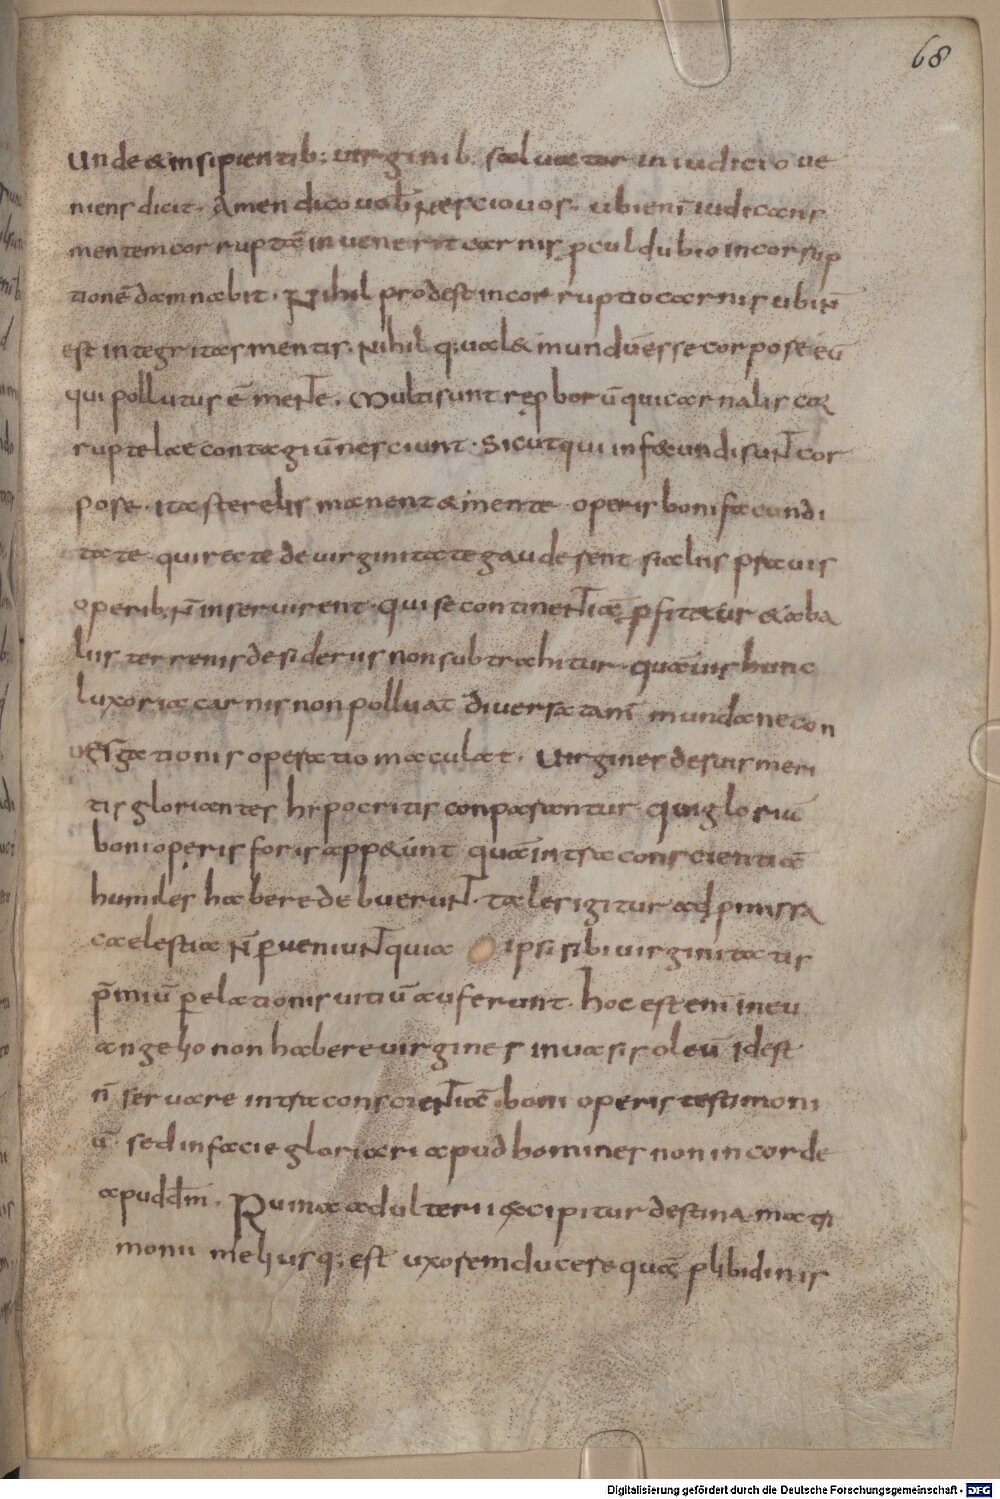 68
unde & insipientib; virginib; saluator in iudicio ue
niens dicit. Amen dico uob̄ nescio uos. ubi enī iudicans
mentem corruptā inuenerit carnis, ꝓcul dubio incorrup
tionē damnabit. Nihil prodest incorruptio carnis ubi n̄
est integritas mentis. Nihil q; ual& mundū esse corpore eū
qui pollutus ē mente. Multi sunt reꝓborū qui carnalis cor
ruptelae contagiū nesciunt. Sicut qui infecundi sunt cor
pore. ita sterelis manent & mente operis boni fecundi
tate. qui recte de virginitate gauderent si aliis prauis
operib; n̄ inseruirent. qui se continentiā ꝓfitetur & ab a
liis terrenis desideriis non subtrahitur. quāuis hunc
luxoria carnis non polluat diuersa tam̄ mundane con
uersationis operatio maculat. Virgines de suis meri
tis gloriantes hypocritis conparantur. qui gloriā
boni operis foris app&unt quā intra conscientiā
humiles habere debuerunt. tales igitur ad ꝓmissa
caelestia n̄ ꝑueniunt quia ipsi sibi uirginitatis
p̄miū ꝑ elationis uitiū auferunt. hoc est enī in eu
angelio non habere uirgines in uasis oleū. Idest
n̄ seruare intra conscientiā boni operis testimoni
ū. sed in facie gloriari apud homines non in corde
apud dm̄. Ruina adulterii excipitur destina matri
monii melius q; est uxorem ducere quā ꝑ libidinis
Digitalisierung gefördert durch die Deutsche Forschungsgemeinschaft - DFG